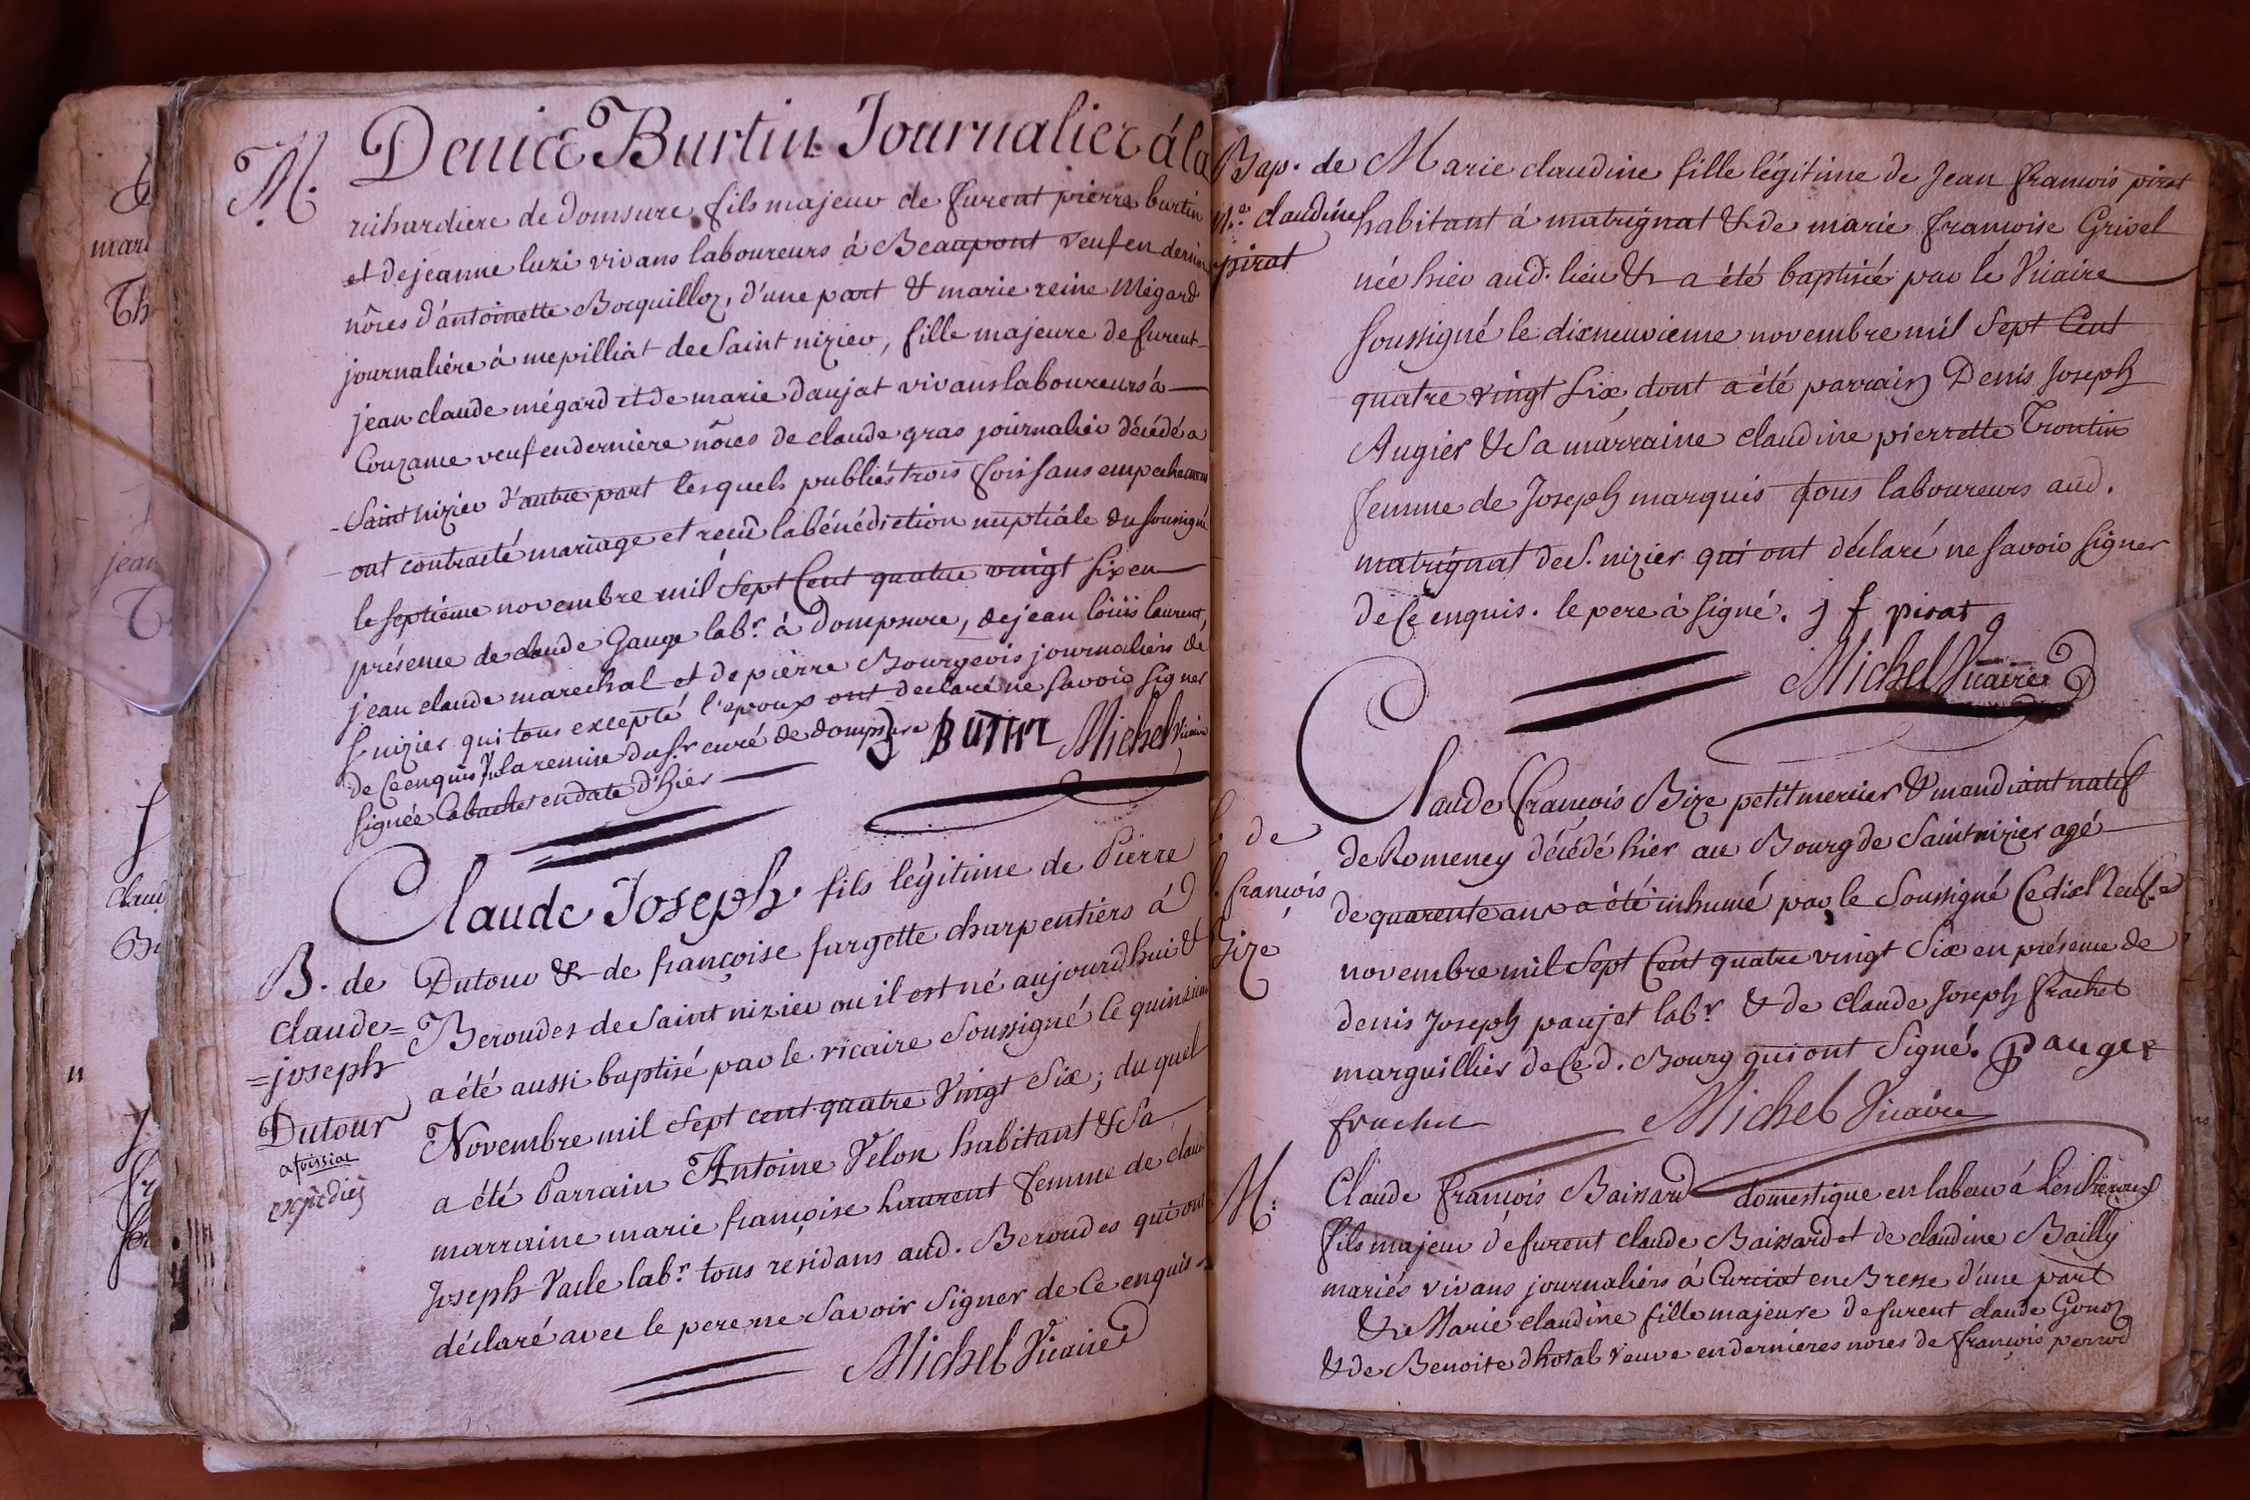 M.
Denice Burtin Journalier á la
richardiere de domsure fils majeur de furent pierre burtin
et de jeanne luzi vivans laboureurs à Beaupont veuf en dernier
nôces d'antoinette Bocquilloz, d'une part & marie reine Mégard
journaliére à mepilliat de Saint nizier, fille majeure de furent
jean claude mégard et de marie daujat vivans laboureurs à
Couzance veuf en derniere nôces de claude gras journalier décédé a
Saint nizier d'autre part lesquels publiés trois fois sans empechement
ont contracté mariage et recû la bénédiction nuptiale du soussigné
le septiéme novembre mil sept Cent quatre vingt six en
présence de claude Gauge labr. à Dompsure, de jean loüis laurent,
jean claude marechal et de pierre Bourgeois journaliers de
S. nizier qui tous excepté l'epoux ont declaré ne savoir signer
de Ce enquis Vu la remise du sr. curé de dompsure BUTIN Michel Vicaire
signée Cabuchet en date d'hier
Claude Joseph fils légitime de Pierre
B. de
claude=
=joseph
Dutour
a foissiat
expédiés
Dutour & de françoise fargette charpentiers á
Beroudes de Saint nizier ou il est né aujourdhui &
a été aussi baptisé par le vicaire Soussigné le quinzieme
Novembre mil sept cent quatre Vingt Six; du quel
a été Parrain Antoine Velon habitant & Sa
marraine marie françoise laurent femme de claude
Joseph Vacle labr. tous residans aud. Beroudes qui ont
déclaré avec le pere ne savoir Signer de Ce enquis
Michel Vicaire
Bap. de
Me. claudine
pirat
Marie claudine fille légitime de Jean francois pirat
habitant á matrignat & de marie françoise Grivel
née hier aud. lieu & a été baptisée par le Vicaire
soussigné le dixneuvieme novembre mil Sept Cent
quatre vingt Six, dont a été parrain Denis Joseph
Augier & Sa marraine claudine pierrette Trontin
femme de Joseph marquis tous laboureurs aud.
matrignat de S. nizier qui ont déclaré ne savoir signer
de Ce enquis. le pere à signé. j f pirat
Michel Vicaire
de
françois
Bize
Claude François Bize petit mercier & mandiant natif
de Romeney décédé hier au Bourg de Saint nizier agé
de quarente ans a été inhumé par le Soussigné Ce dixneufe
novembre mil Sept Cent quatre vingt Six en présence de
denis Joseph paujet labr. & de claude Joseph frachet
marguillier de Ced. Bourg qui ont Signé. D auger
frachet Michel Vicaire
M:
Claude françois Baissard domestique en labeur à
fils majeur de furent claude Baissard et de claudine Bailly
mariés vivans journaliers à Curciat en Bresse d'une part
& Marie claudine fille majeure de furent claude Gonoz
& de Benoite dhotal veuve en dernieres noces de françois perrod